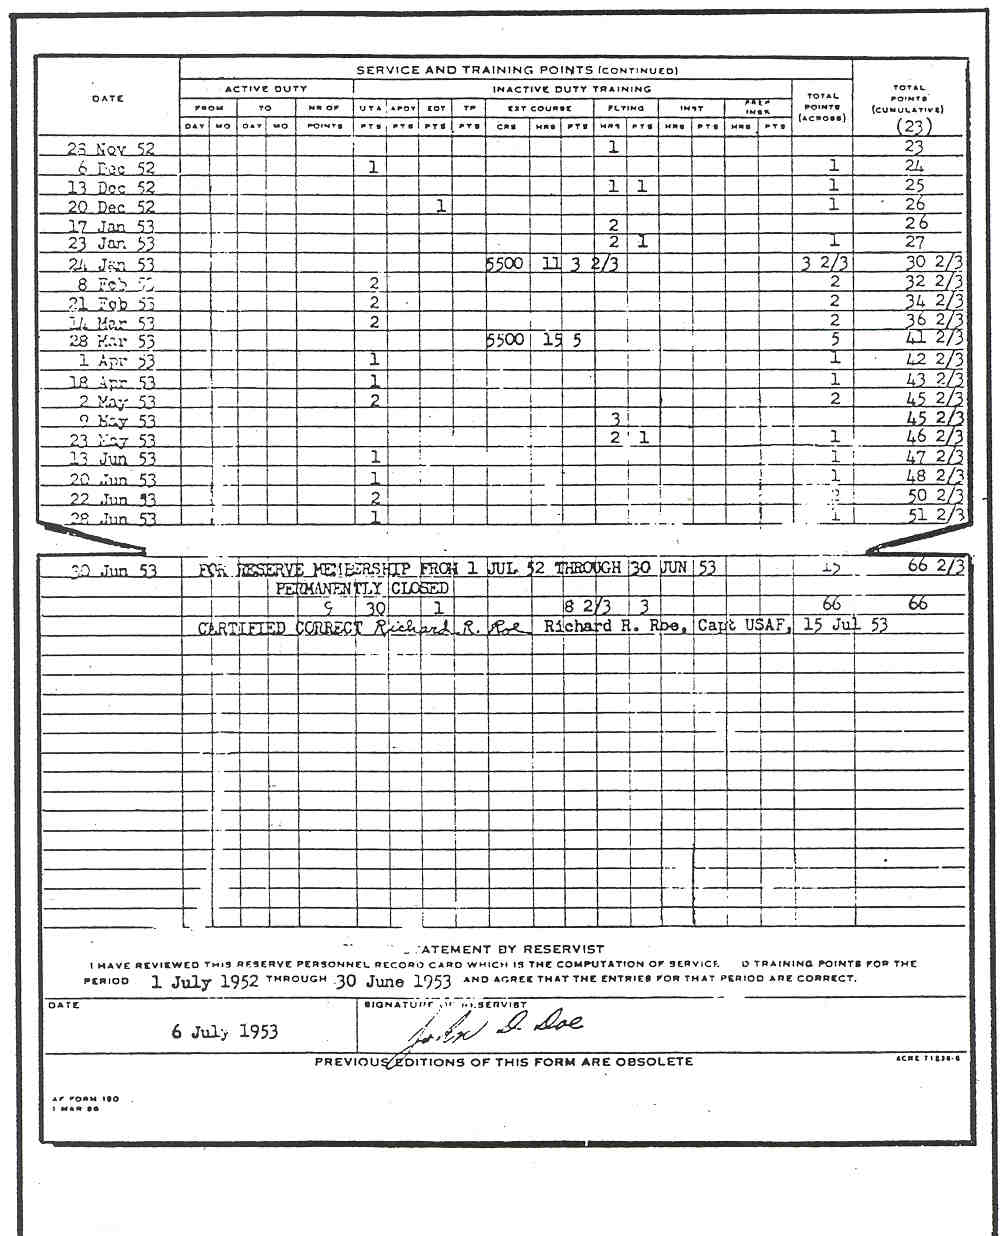 SERVICE AND TRAINING POINTS (CONTINUED)
DATE ACTIVE DUTY INACTIVE DUTY TRAINING TOTAL POINTS (ACROSS) TOTAL POINTS (CUMULATIVE)
FROM TO NR OF UTA APDY EDT TP EXT COURSE FLYING INST PREP INSR
DAY MO DAY MO POINTS PTS PTS PTS PTS CRS HRS PTS HRS PTS HRS PTS HRS PTS (23)
23 Nov 52 1 23
6 Dec 52 1 1 24
13 Dec 52 1 1 1 25
20 Dec 52 1 1 26
17 Jan 53 2 26
23 Jan 53 2 1 1 27
24 Jan 53 5500 11 3 2/3 3 2/3 30 2/3
8 Feb 2 2 32 2/3
21 Feb 53 2 2 34 2/3
14 Mar 53 2 2 36 2/3
28 Mar 53 5500 15 5 5 41 2/3
1 Apr 53 1 1 42 2/3
18 Apr 53 1 1 43 2/3
2 May 53 2 2 45 2/3
9 May 53 3 45 2/3
23 May 53 2 1 1 46 2/3
13 Jun 53 1 1 47 2/3
20 Jun 53 1 1 48 2/3
22 Jun 53 2 2 50 2/3
28 Jun 53 1 1 51 2/3
30 Jun 53 FOR RESERVE MEMBERSHIP FROM 1 JUL 52 THROUGH 30 JUN 53 15 66 2/3
PERMANENTLY CLOSED
30 1 8 2/3 3 66 66
CARTIFIED CORRECT Richard R. Roe Richard R. Roe, Capt USAF, 15 Jul 53
ATEMENT BY RESERVIST
I HAVE REVIEWED THIS RESERVE PERSONNEL RECORD CARD WHICH IS THE COMPUTATION OF SERVICE D TRAINING POINTS FOR THE
PERIOD 1 July 1952 THROUGH 30 June 1953 AND AGREE THAT THE ENTRIES FOR THAT PERIOD ARE CORRECT.
DATE SIGNATURE OF RESERVIST
6 July 1953 John D. Doe
PREVIOUS EDITIONS OF THIS FORM ARE OBSOLETE
AF FORM 190
1 MAR